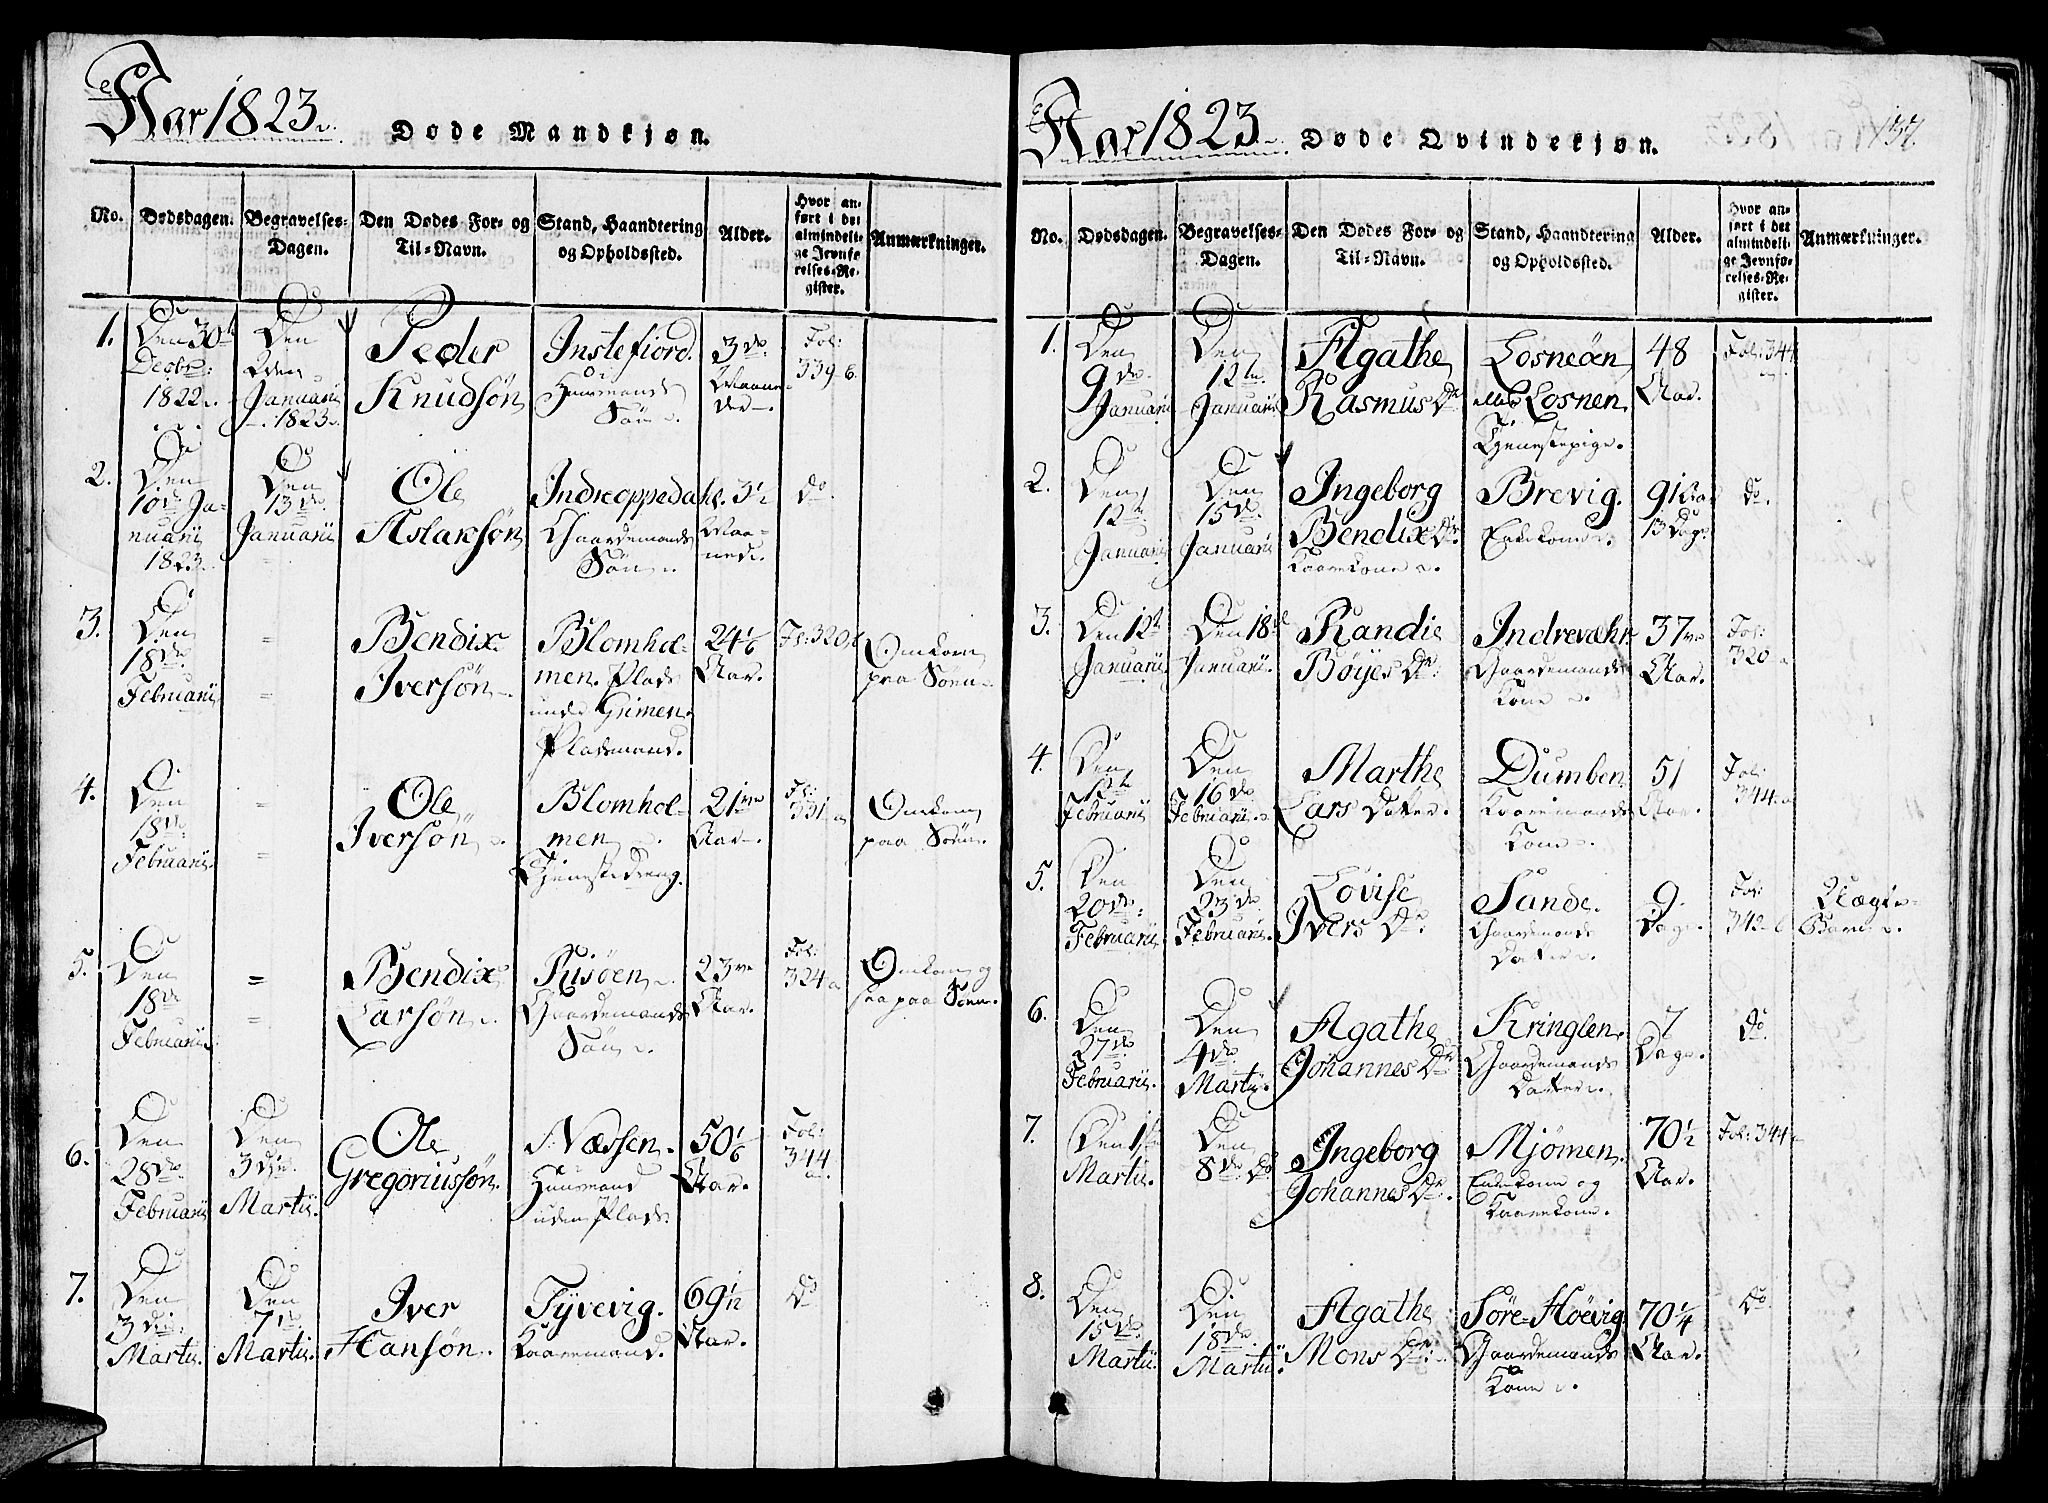 Aar 1823. Døde Mandkjøn.
No. Dødsdagen. Begravelses-Dagen. Den Dødes For- og Til-Navn. Stand, Haandtering og Opholdssted. Alder. Hvor anført i det almindelige Jevnførelses-Register. Anmærkninger.
1. Den 30te Decbr: 1822. Den 2den Januarii 1823. Peder Knudsøn Instefiord. Huusmands Søn. 3de Maaneder. Fol: 339 b.
2. Den 10de Januarii 1823. Den 13de Januarii Ole Aslaksøn Indreoppedahl. Gaardemands Søn. 3½ Maaned. do.
3. Den 18de Februarii = = Bendix Iversøn Blomholmen. Plads under Grimen. Pladsmand. 24⅙ Aar. Fol: 320 Omkom paa Søen.
4. Den 18de Februarii. = = Ole Iversøn Blomholmen Tjenestedreng. 21 Aar. Fol: 331 a Omkom paa Søen.
5. Den 18de Februarii = = Bendix Larsøn Risøen. Gaardemands Søn. 23 Aar. Fol: 324 a Omkom og paa Søen.
6. Den 28de Februarii Den 3die Martii. Ole Gregoriussøn. Næssen. Huusmand uden Plads. 50⅙ Aar. Fol: 344 a
7. Den 3die Martii. Den 7de Martii. Iver Hansøn. Tyvevig. Kaaremand. 69 1/12 Aar. do
Aar 1823. Døde Qvindekjøn. 157.
No. Dødsdagen. Begravelses-Dagen. Den Dødes For- og Til-Navn. Stand, Haandtering og Opholdssted. Alder. Hvor anført i det almindelige Jevnførelses-Register. Anmærkninger.
1. Den 9de Januarii Den 12te Januarii Agathe Rasmus Dr Losneøen eller Losnen. Tjenestepige. 48 Aar. Fol: 344
2. Den 12te Januarii Den 15de Januarii Ingeborg Bendix Dr. Kaarekone. Brevig. Enkekone. 91 Aar 13 Dage do.
3. Den 12te Januarii Den 18de Januarii. Randi Bøyes Dr. Indreværk. Gaardemands Kone. 37 Aar. Fol: 320 a
4. Den 12te Februarii Den 16de Februarii. Marthe Lars Datter. Dumben Kaaremands Kone. 51 Aar. Fol: 344 a
5. Den 20de Februarii. Den 23de Februarii. Lovise Ivers Dr. Sande. Gaardemands Datter. 9 Dage. Fol: 342 b Uægte Barn.
6. Den 27de Februarii. Den 4de Martii. Agathe Johannes Dr Kringlen. Gaardemands Datter. 7 Dage. do.
7. Den 1ste Martii. Den 8de do Ingeborg Johannes Dr. Mjømen. Enkekone og Kaarekone. 70½ Aar. Fol: 344
8. Den 15de Martii. Den 18de Martii. Agathe Mons Dr. Søre-Høevig. Gaardemands Kone. 70¼ Aar. do.